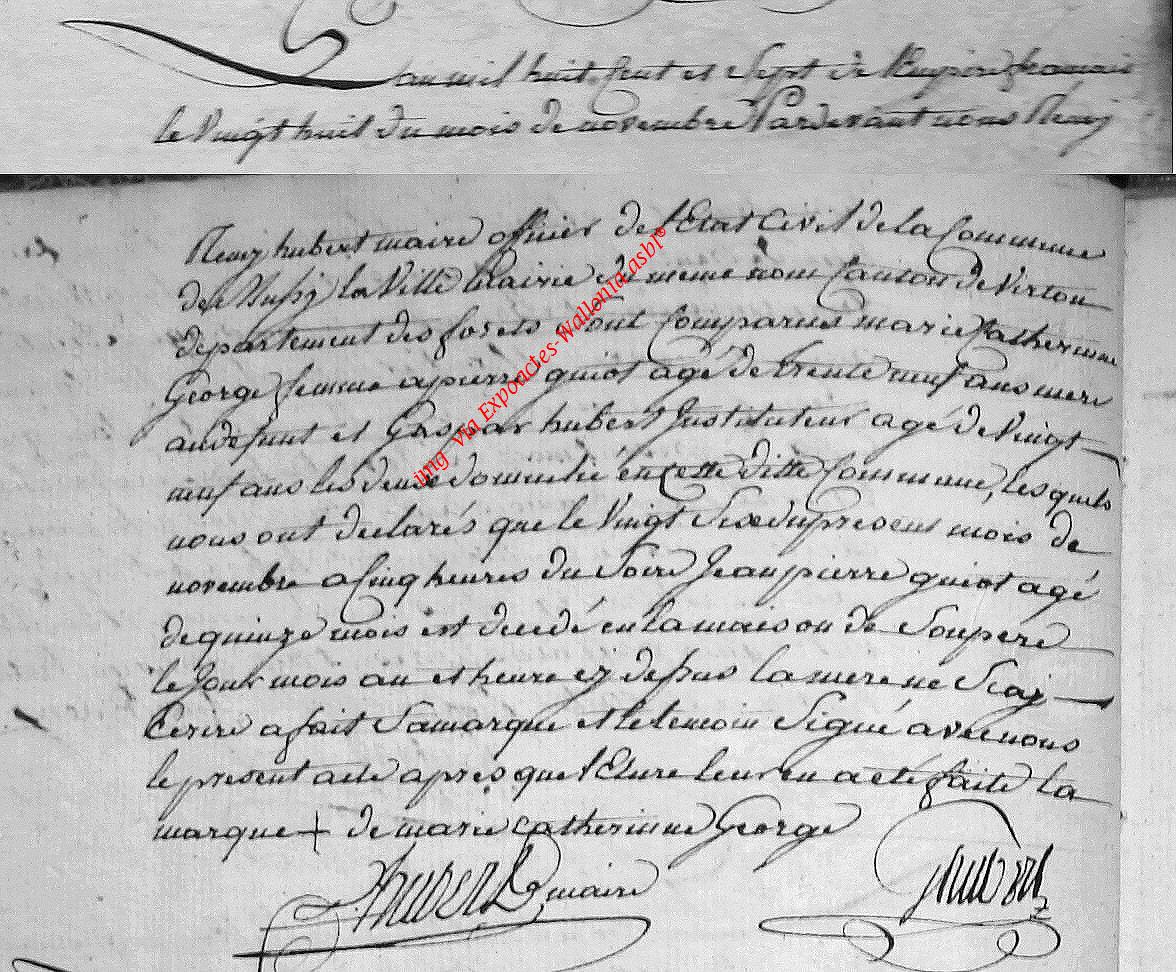 L'an mil huit Cent et Sept de l'Empire francais
le Vingt huit du mois de novembre Pardevant nous Remy
Remy hubert maire officier de l'Etat Civil de la Commune
de Mussy la Ville Mairie du meme nom Canton de Virton
departement des forets Sont Comparus marie Catherinne
George femme a pierre guiot agé de trente neuf ans mere
au defunt et Gaspar hubert Instituteur agé de Vingt
neuf ans les deux domicilié en Cette ditte Commune, les quels
nous ont declarés que le Vingt Six du present mois de
novembre a Cinq heures du Soire Jean pierre guiot agé
de quinze mois est decedé en la maison de Son pere
le Jour mois an et heure cy depus la mere ne Scay
Ecrire a fait Sa marque et le temoin Signé avec nous
le present acte apres que lEture leur en a eté faite la
marque + de marie Catherinne George
Rhubert maire
ghubert
img via Expoactes-Wallonia.asbl®